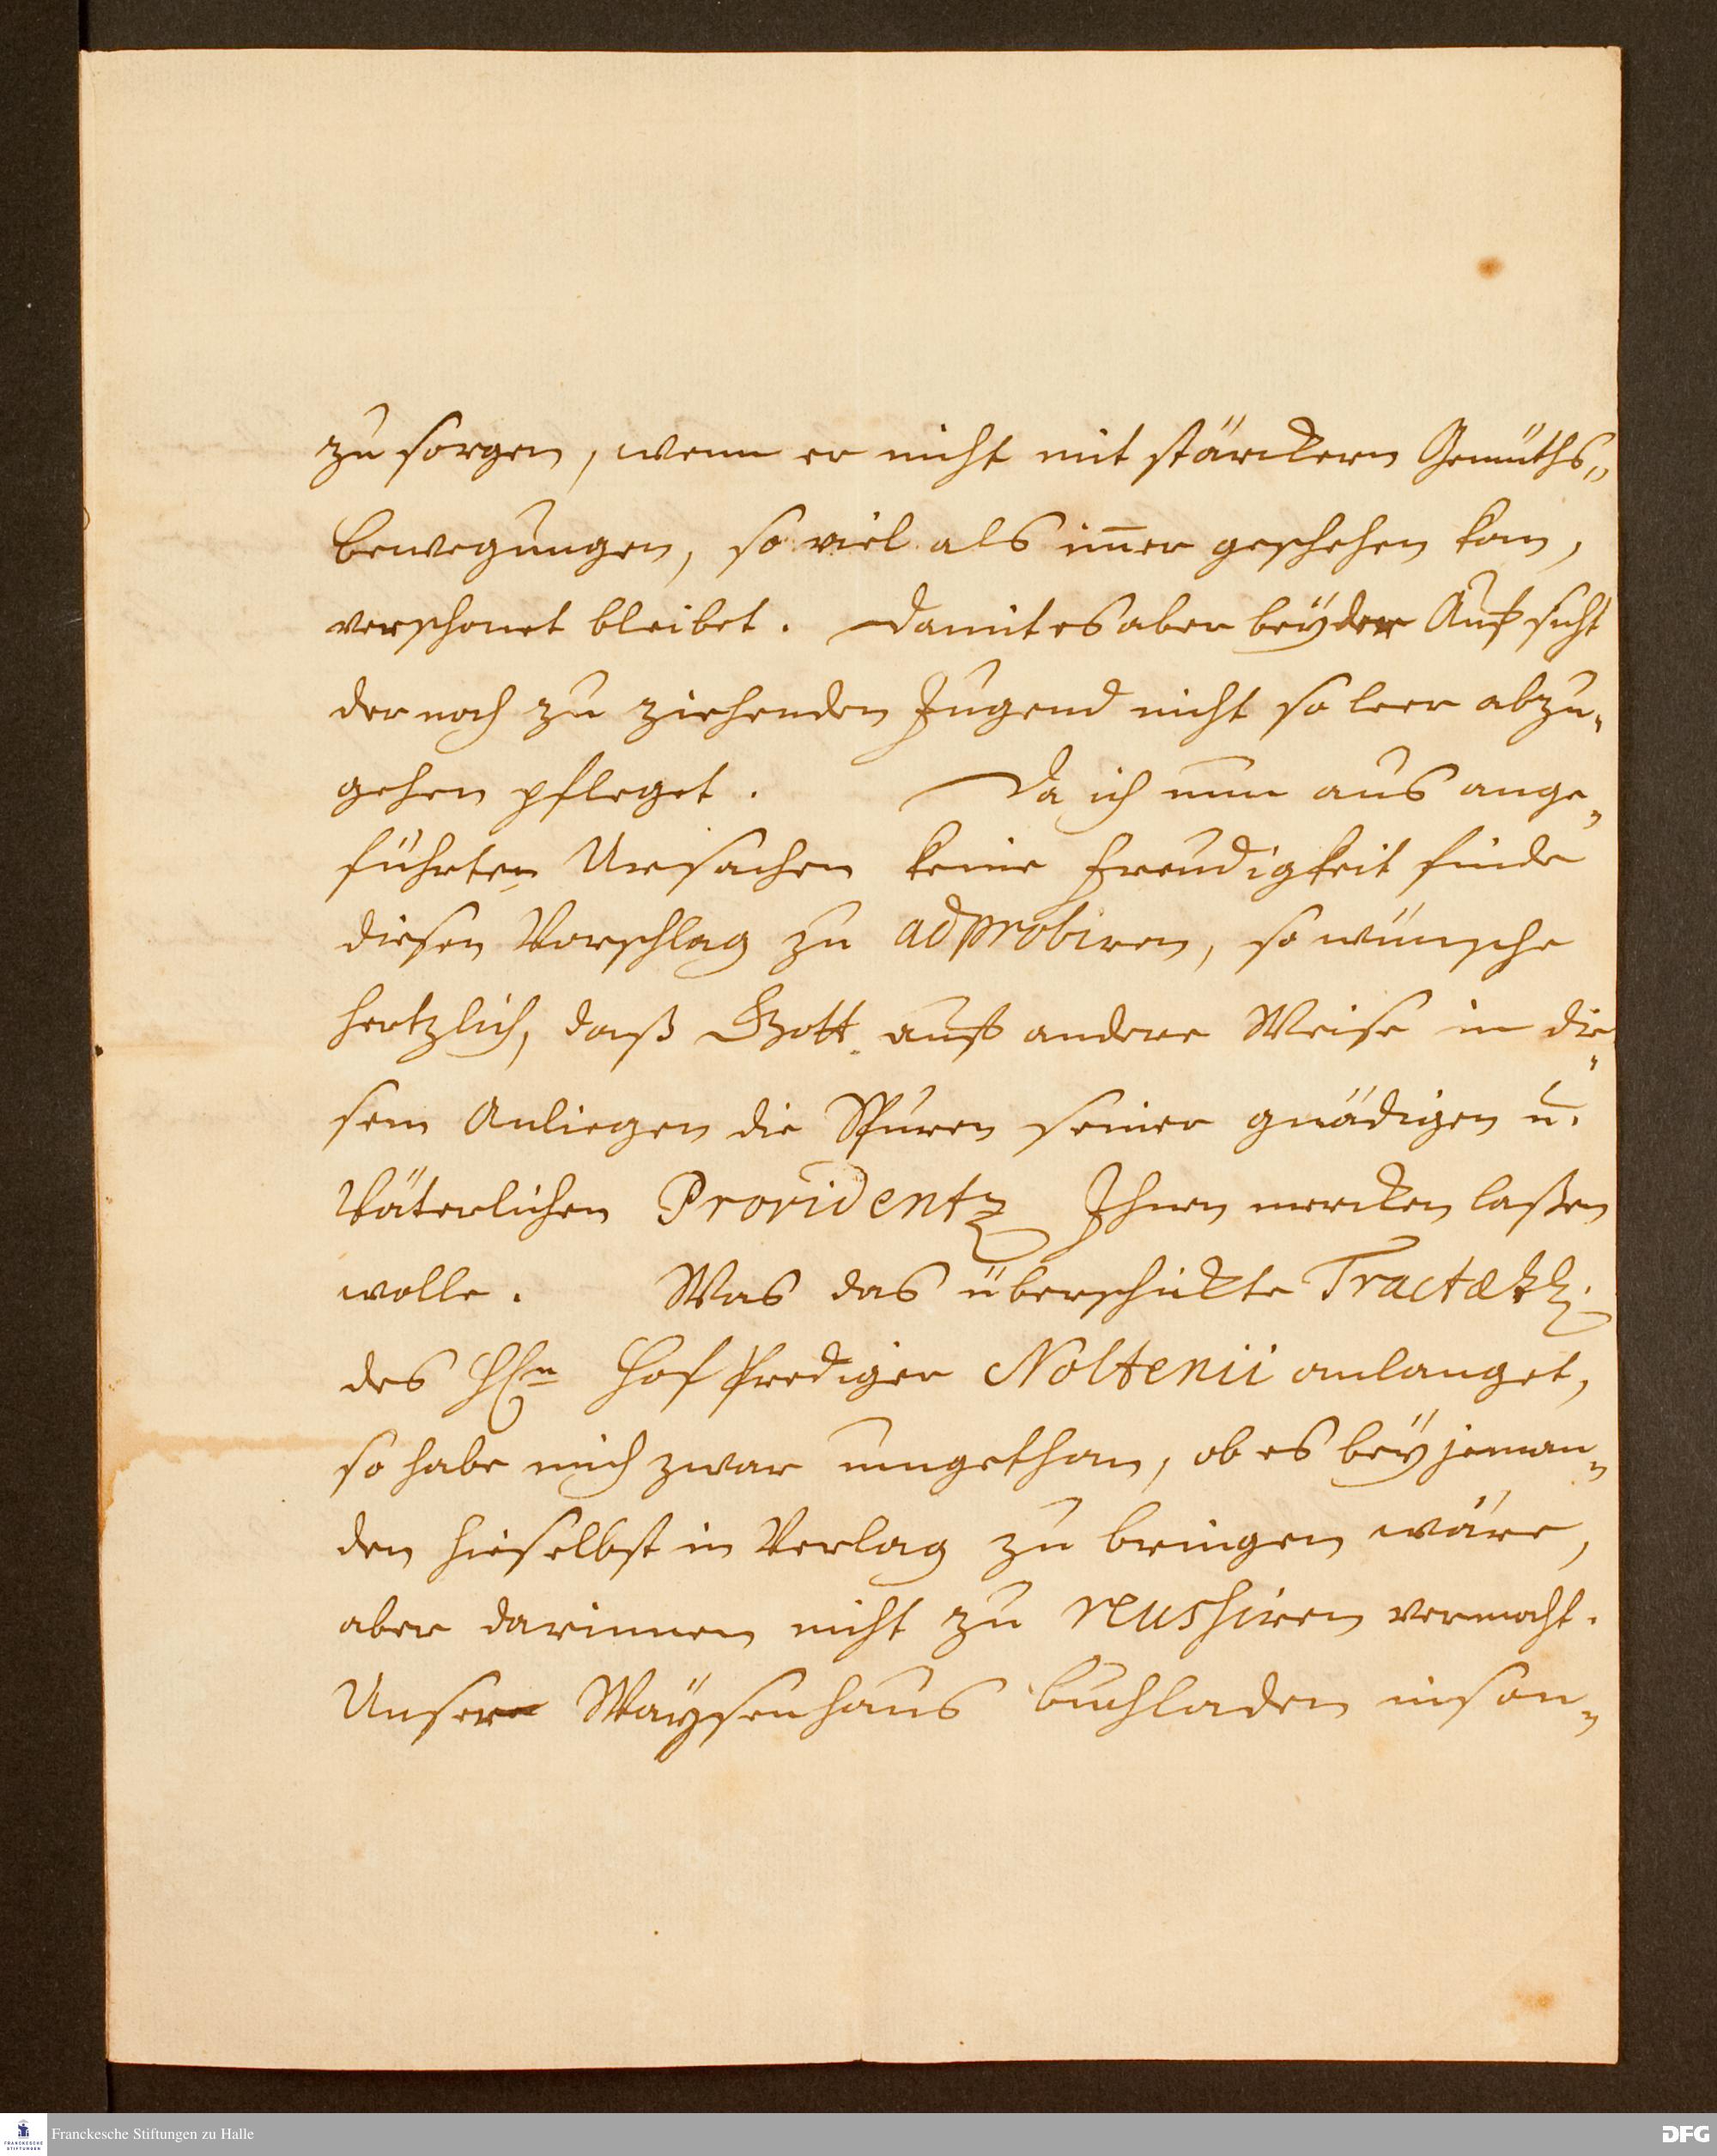 zu sorgen, wenn er nicht mit stärckern Gemüths„
bewegungen, so viel als im̅er geschehen kan,
verschonet bleibet. Damit es aber bey der Aufsicht
der noch zu ziehenden Jugend nicht so leer abzu„
gehen pfleget. Da ich nun aus ange„
führten Ursachen keine Freudigkeit finde
diesen Vorschlag zu adprobiren, so wünsche
hertzlich, daß Gott auf andere Weise in die„
sem Anliegen die Spuren seiner gnädigen u.
Väterlichen Providentz Ihnen mercken laßen
wolle. Was das überschickte
des HEn Hof Prediger Noltenii anlanget,
so habe mich zwar umgethan, ob es bey jeman„
den hieselbst in Verlag zu bringen wäre,
aber darinnen nicht zu reusiren vermocht.
Unser Waysenhaus buchladen inson„
Franckesche Stiftungen zu Halle
FRANCKESCHE STIFTUNGEN
DFG